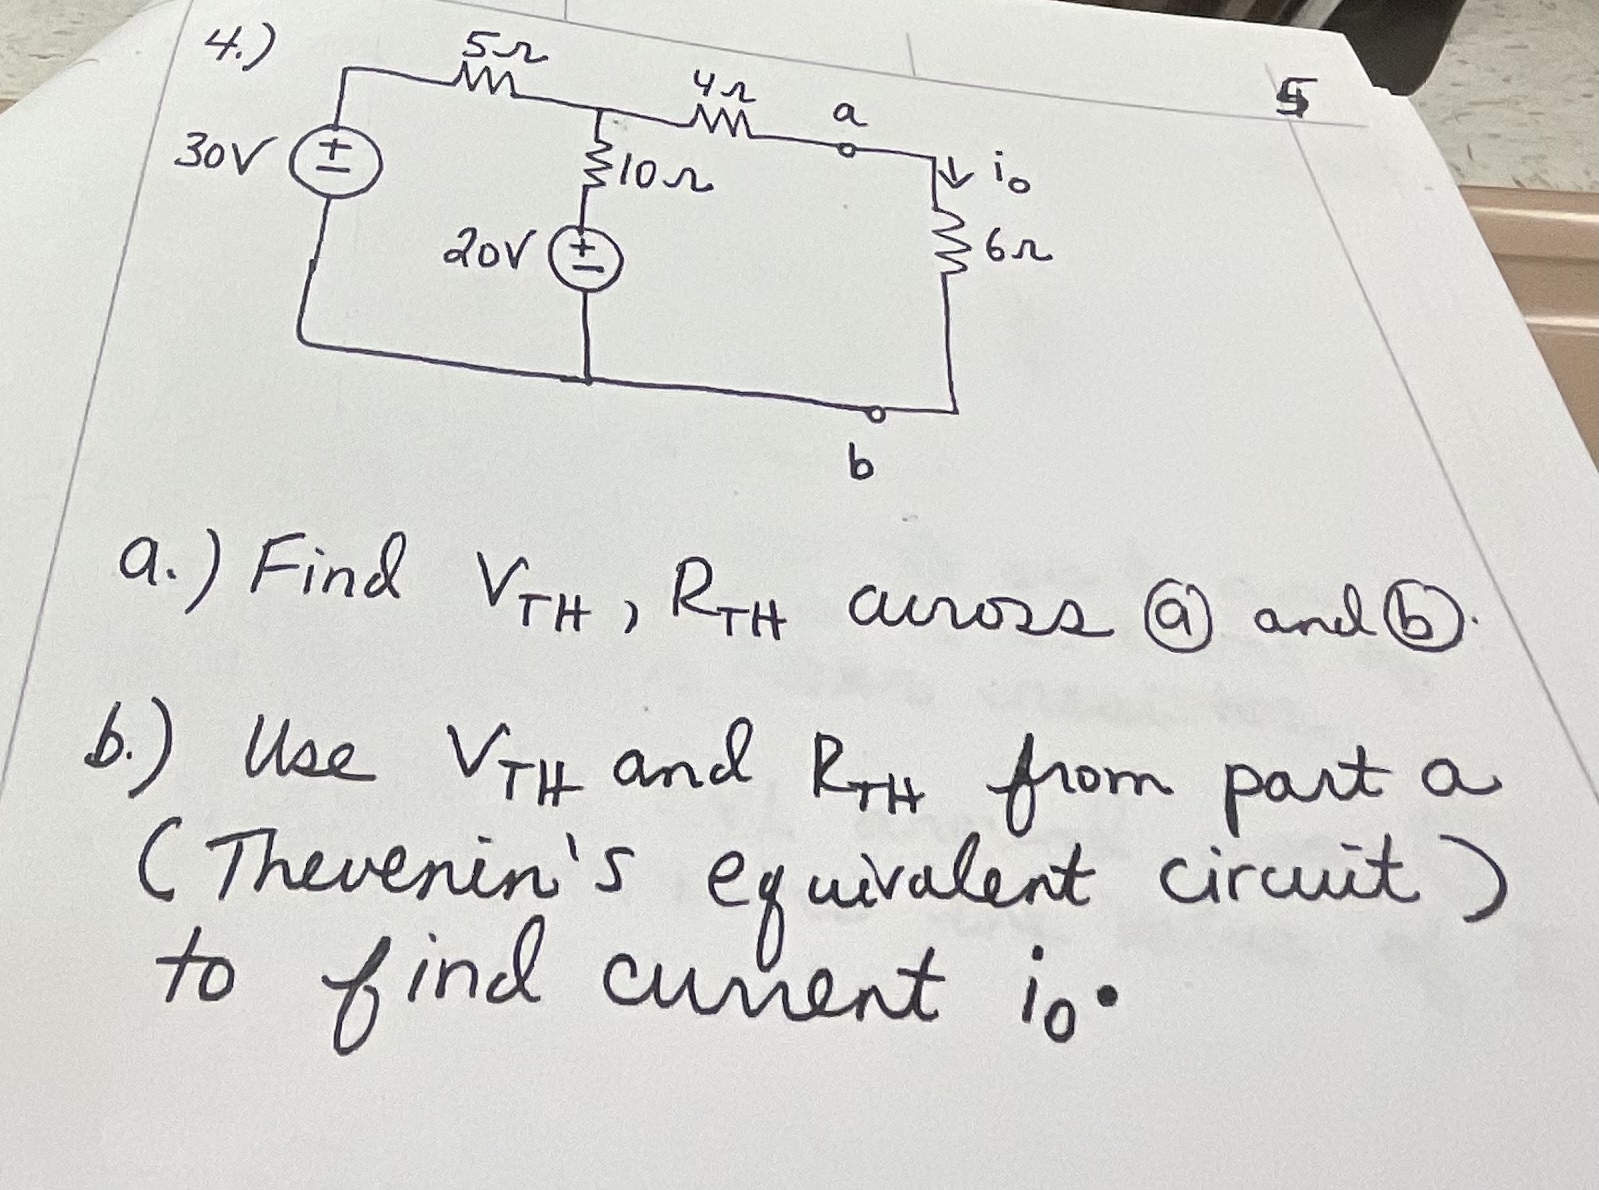 4.)
5Ω
4Ω
a
5
30V
+
-
10Ω
i₀
20V
+
-
6Ω
b
a.) Find V_TH, R_TH across ⓐ and ⓑ.
b.) Use V_TH and R_TH from part a
(Thevenin's equivalent circuit)
to find current i₀.